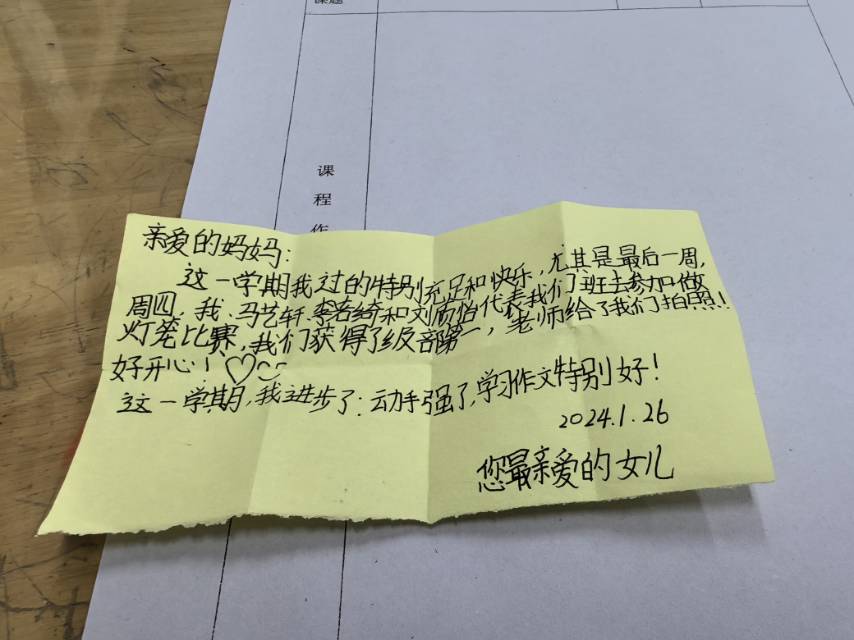 课题
课
程
作
亲爱的妈妈:
这一学期我过的特别充足和快乐,尤其是最后一周,
周四,我、马艺轩、李若绮和刘雨怡代表我们班去参加做
灯笼比赛,我们获得了级部第一,老师给了我们拍照!
好开心!♡
这一学期,我进步了:动手强了,学习作文特别好!
2024.1.26
您最亲爱的女儿